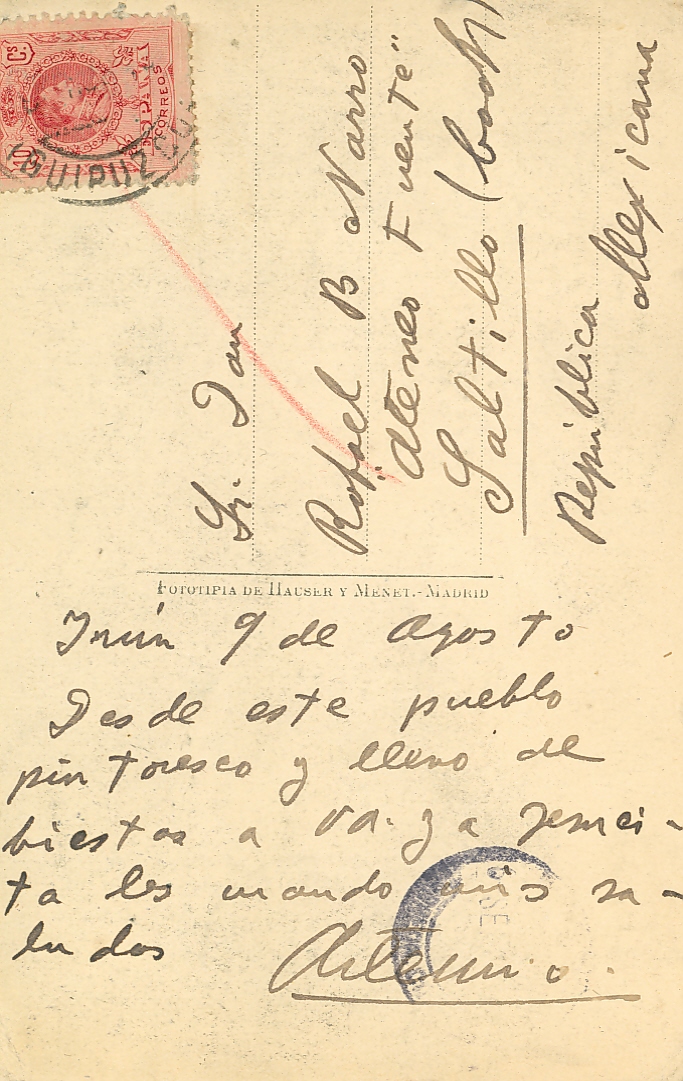 Cs
ESPAÑA
CORREOS
10
GUIPUZCOA
Sr. Don
Rafael B Narro
"Ateneo Fuente"
Saltillo (Coah)
República
Mexicana
FOTOTIPIA DE HAUSER Y MENET.-MADRID
Irún 9 de Agosto
Desde este pueblo
pintoresco y lleno de
a Vd. y a
ta les mando mis sa-
ludos
Artemio.